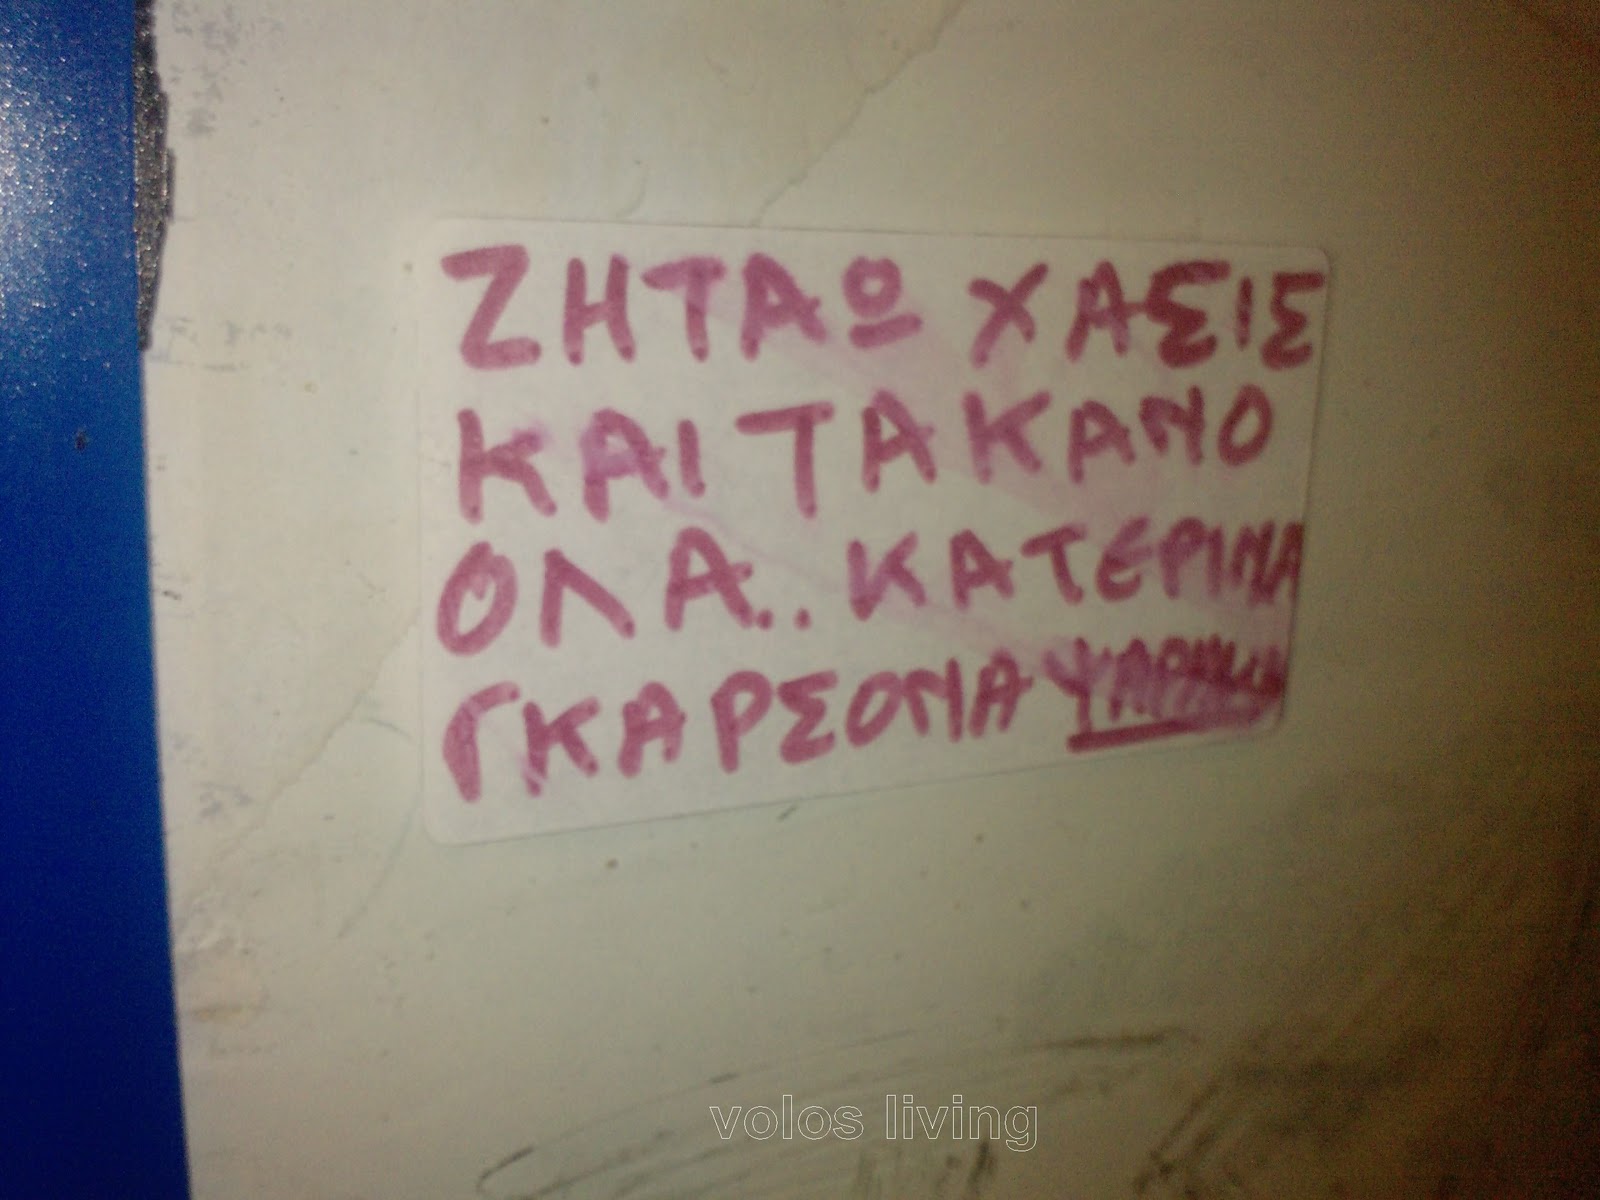 ΖΗΤΑΩ ΧΑΣΙΣ
ΚΑΙ ΤΑ ΚΑΝΟ
ΟΛΑ.. ΚΑΤΕΡΙΝΑ
ΓΚΑΡΣΟΝΑ
volos living